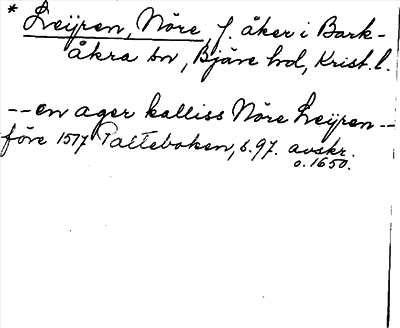 * Leijren, Nöre, f. åker i Bark-
åkra sn, Bjäre hd, Krist. l.
-- en ager kalliss Nöre Leijren --
före 1517 Palteboken, s. 97. avskr.
o. 1650.